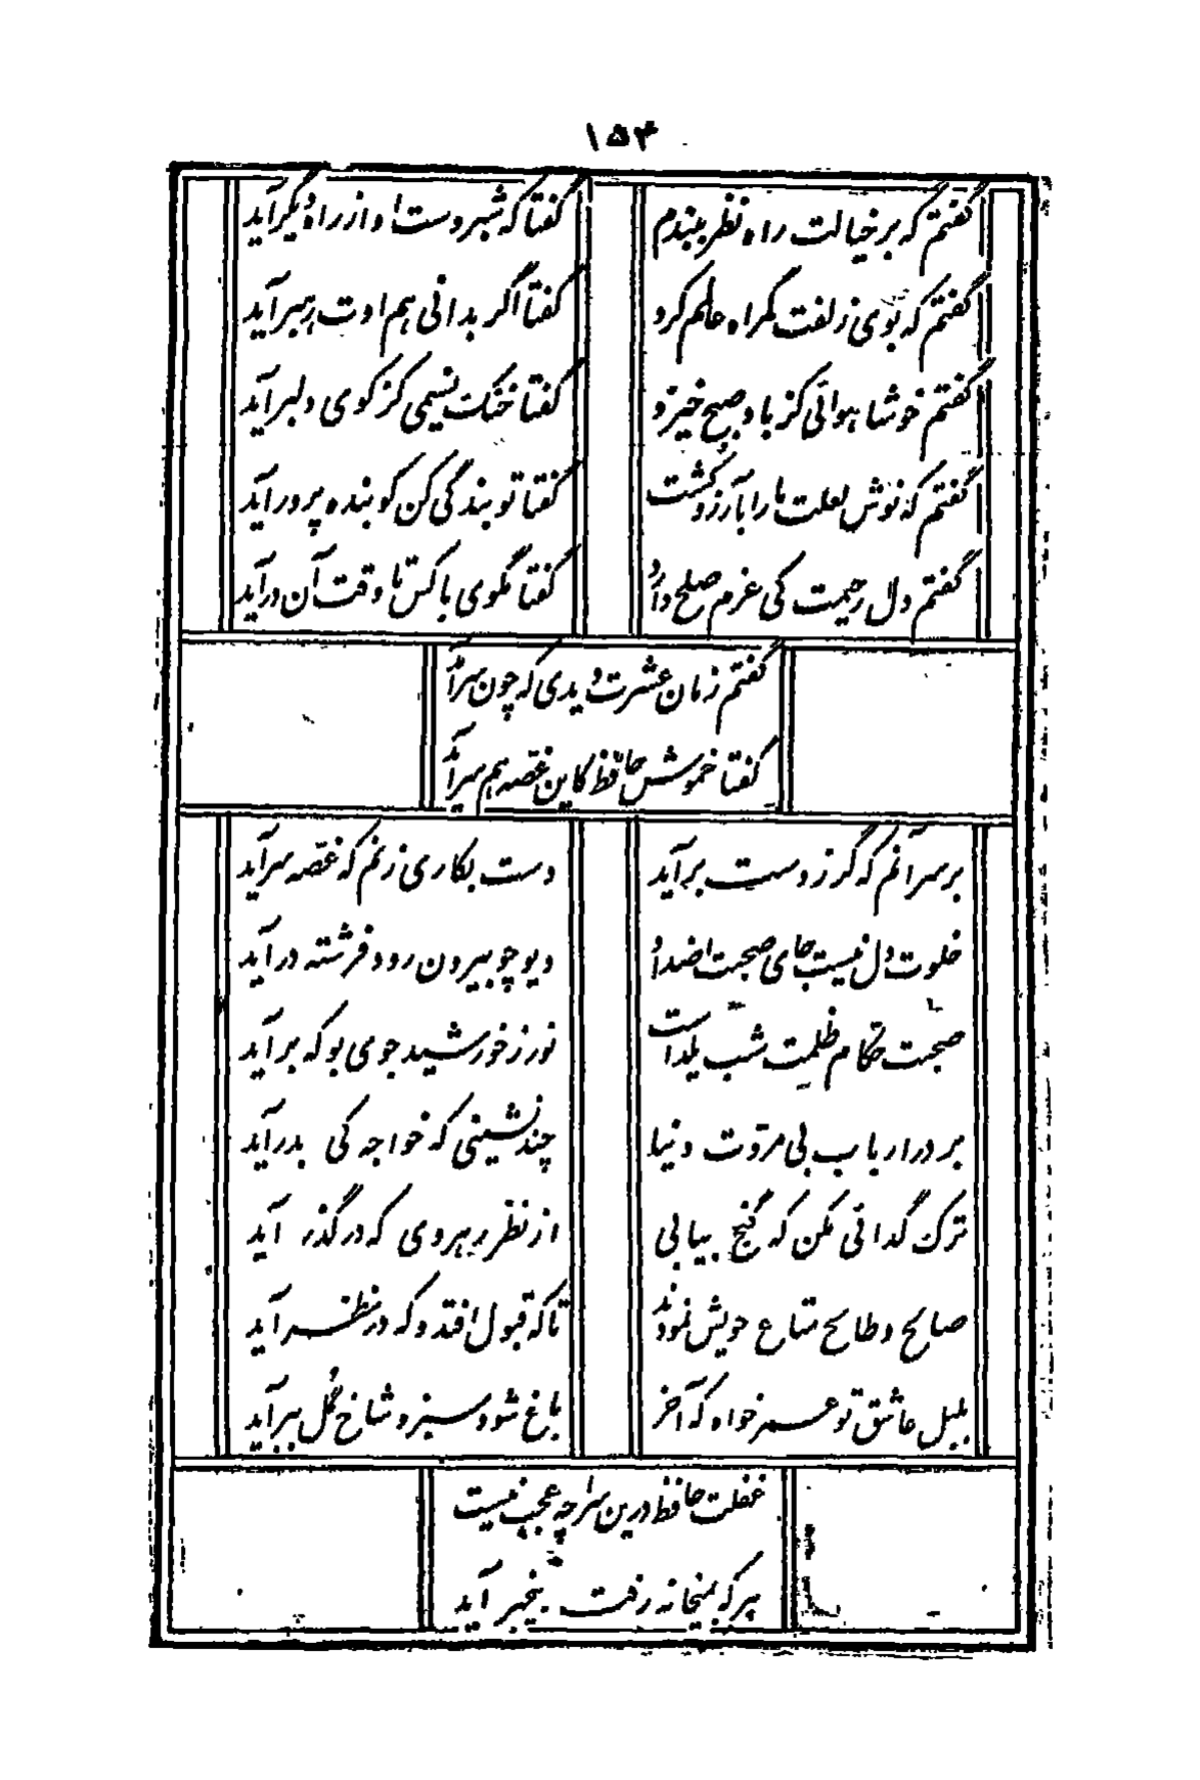 ۱۵۴
گفتم که بر خیالت راه نظر ببندم
گفتا که شبروست او از راه دیگر آید
گفتم که بوی زلفت گمراه عالمم کرد
گفتا اگر بدانی هم اوت رهبر آید
گفتم خوشا هوائی کز باد صبح خیزد
گفتا خنک نسیمی کز کوی دلبر آید
گفتم که نوش لعلت ما را بآرزو کشت
گفتا تو بندگی کن کو بنده پرور آید
گفتم دل رحیمت کی عزم صلح دارد
گفتا مگوی با کس تا وقت آن درآید
گفتم زمان عشرت دیدی که چون سرآمد
گفتا خموش حافظ کاین غصه هم سرآید
بر سر آنم که گر ز دست برآید
دست بکاری زنم که غصه سرآید
خلوت دل نیست جای صحبت اضداد
دیو چو بیرون رود فرشته درآید
صحبت حکام ظلمت شب یلداست
نور ز خورشید جوی بو که برآید
بر در ارباب بی مروت دنیا
چند نشینی که خواجه کی بدر آید
ترک گدائی مکن که گنج بیابی
از نظر رهروی که در گذر آید
صالح و طالح متاع خویش نمودند
تا که قبول افتد و که در نظر آید
بلبل عاشق تو عمر خواه که آخر
باغ شود سبز و شاخ گل ببر آید
غفلت حافظ درین سراچه عجب نیست
هر که بمیخانه رفت بیخبر آید